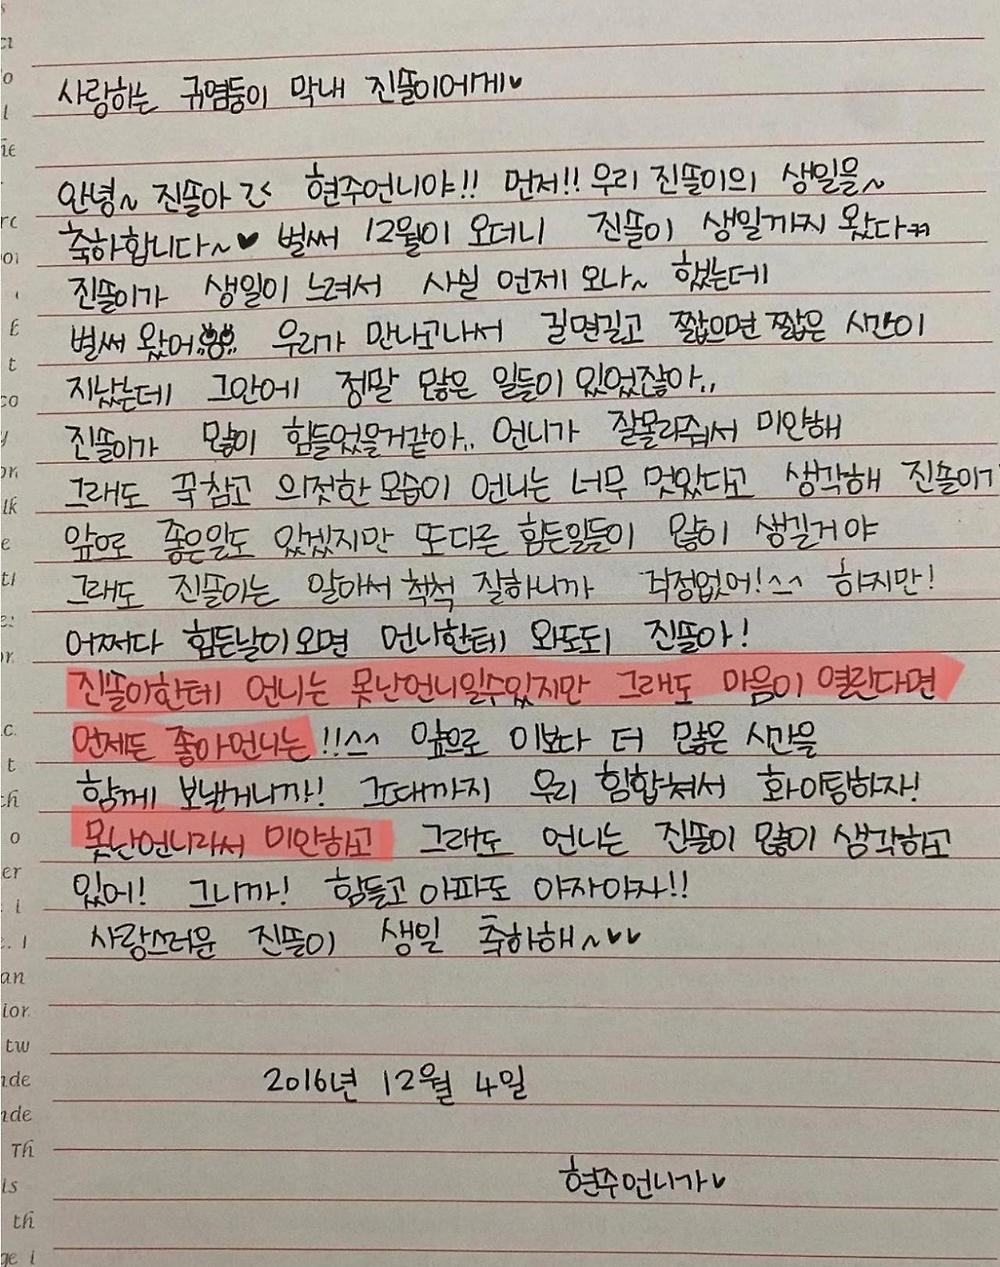 사랑하는 귀염둥이 막내 진쏠이에게♥
안녕~ 진쏠아 ㄹㅅ 현주언니야!! 먼저!! 우리 진쏠이의 생일을~
축하합니다~♥ 벌써 12월이 오더니 진쏠이 생일까지 왔다ㅋㅋ
진쏠이가 생일이 느려서 사실 언제 오나~ 했는데
벌써 왔어 우리가 만나고나서 길면길고 짧으면 짧은 시간이
지났는데 그안에 정말 많은 일들이 있었잖아..
진쏠이가 많이 힘들었을거같아.. 언니가 잘몰라줘서 미안해
그래도 꾹참고 의젓한 모습이 언니는 너무 멋있다고 생각해 진쏠이
앞으로 좋은일도 있겠지만 또다른 힘든일들이 많이 생길거야
그래도 진쏠이는 알아서 척척 잘하니까 걱정없어!^^ 하지만!
어쩌다 힘든날이오면 언니한테 와도돼 진쏠아!
진쏠이한테 언니는 못난언니일수있지만 그래도 마음이 열린다면
언제든 좋아언니는!!^^ 앞으로 이보다 더 많은 시간을
함께 보낼거니까! 그때까지 우리 힘합쳐서 화이팅하자!
못난언니라서 미안하고 그래도 언니는 진쏠이 많이 생각하고
있어! 그니까! 힘들고 아파도 아자아자!!
사랑스러운 진쏠이 생일 축하해~♥♥
2016년 12월 4일
현주언니가♥